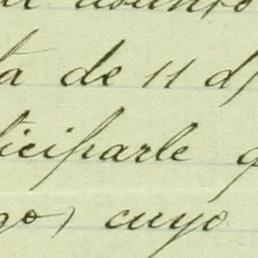 asunto
ta de 11 d
ticiparle q
go) cuyo